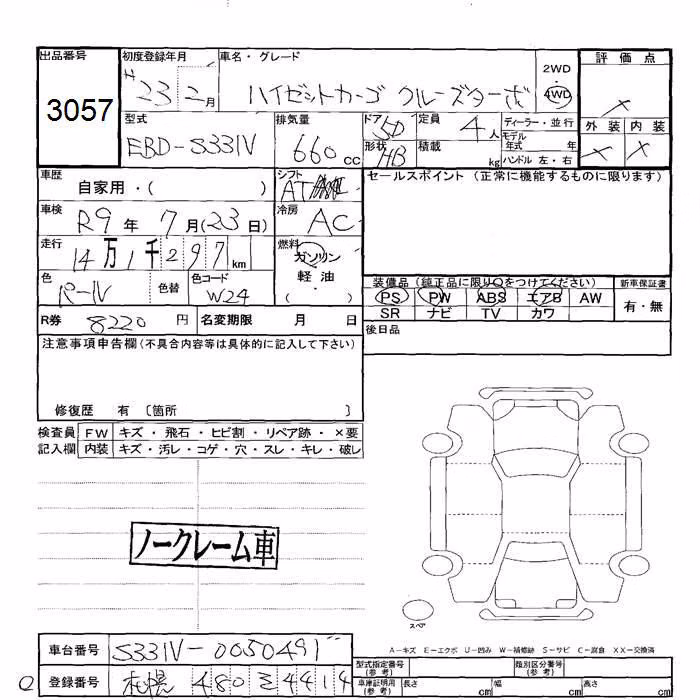 出品番号 初度登録年月 車名・グレード 評価点
3057 H 23 2月 ハイゼットカーゴ クルーズターボ 2WD 4WD ×
型式 排気量 ドア 5D 定員 4人 ディーラー・並行 外装 内装
EBD-S331V 660cc 形状 HB 積載 kg モデル年式 年 ハンドル 左・右 × ×
車歴 自家用・( ) シフト AT セールスポイント(正常に機能するものに限ります)
車検 R9年 7月(23日) 冷房 AC
走行 14万1千297km 燃料 ガソリン 軽油・( )
色 パール 色替 色コード W24 装備品(純正品に限り○をつけてください) 新車保証書
PS PW ABS エアB AW 有・無
R券 8220円 名変期限 月 日 SR ナビ TV カワ
注意事項申告欄(不具合内容等は具体的に記入して下さい) 後日品
修復歴 有 〔箇所 〕
検査員 FW キズ・飛石・ヒビ割・リペア跡・×要
記入欄 内装 キズ・汚レ・コゲ・穴・スレ・キレ・破レ
ノークレーム車
スペア
A-キズ E-エクボ U-凹み W-補修跡 S-サビ C-腐食 XX-交換済
車台番号 S331V-0050491 型式指定番号(参考) 類別区分番号(参考)
登録番号 札幌 480 ミ 4414 車庫証明用(参考) 長さ cm 幅 cm 高さ cm